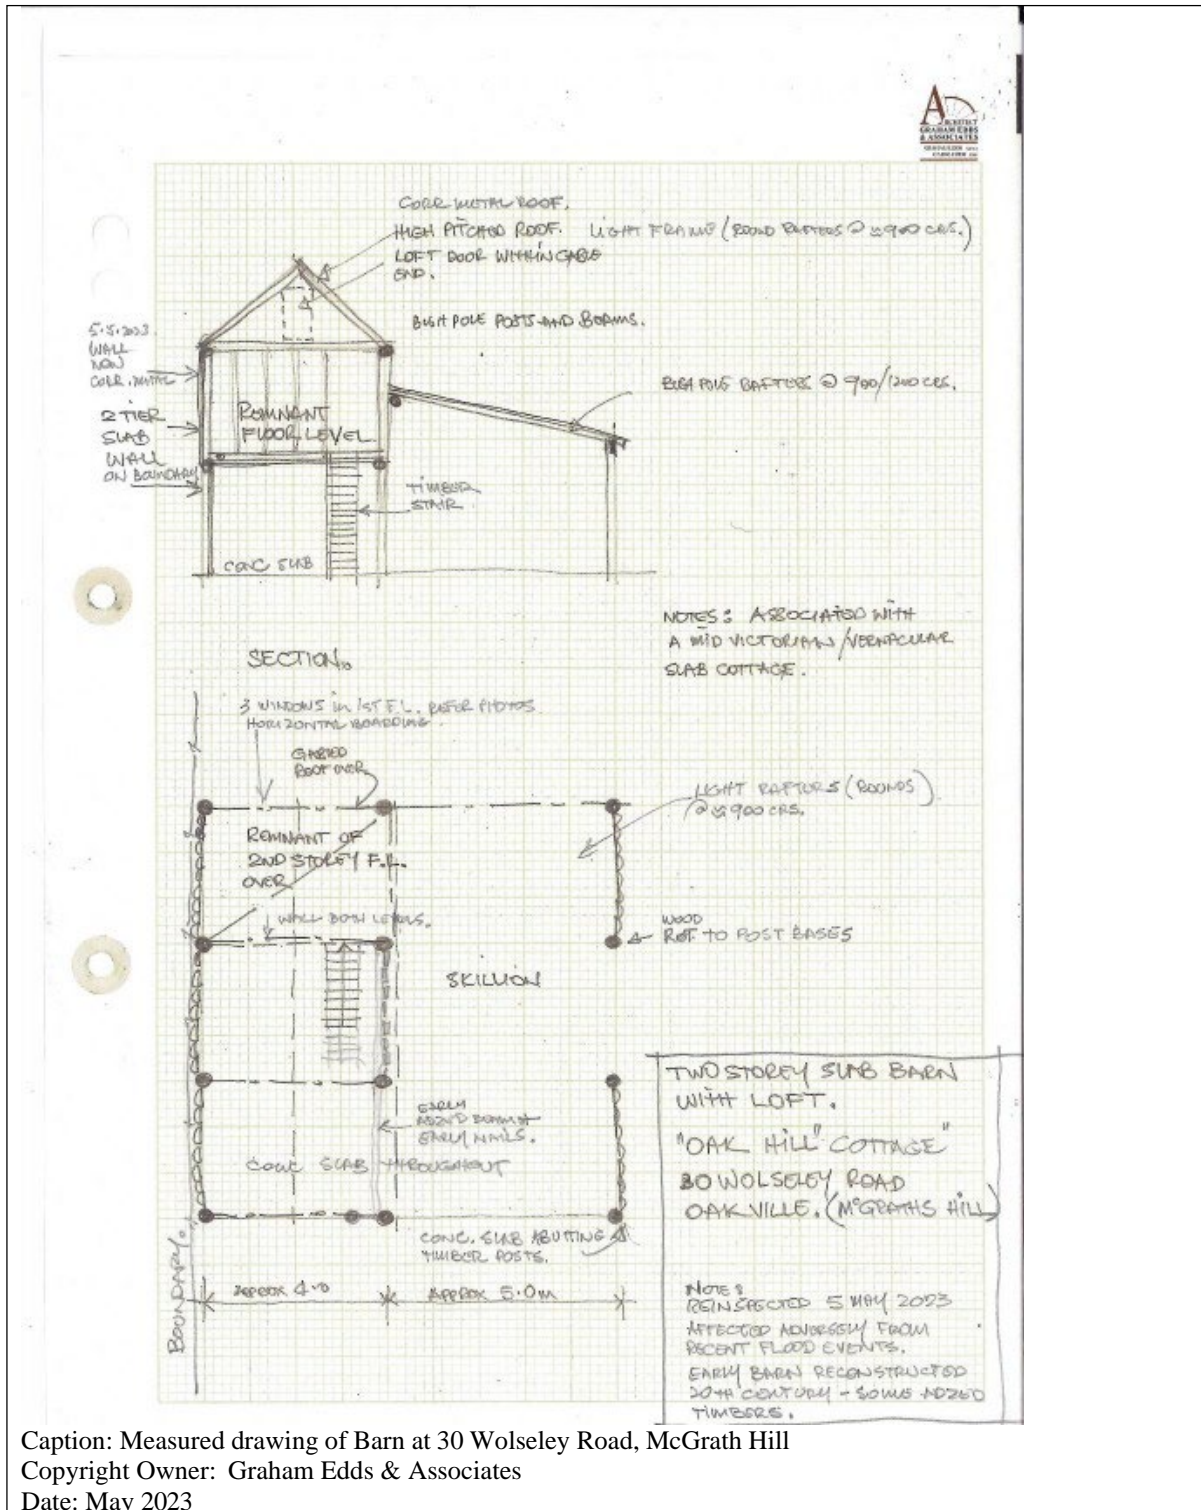 ARCHITECT
GRAHAM EDDS
& ASSOCIATES
CORR METAL ROOF.
HIGH PITCHED ROOF. LIGHT FRAME (ROUND RAFTERS @ 900 CRS.)
LOFT DOOR WITHIN GABLE
END.
BUSH POLE POSTS AND BEAMS.
5.5.2023
WALL
NOW
CORR. METAL
2 TIER
SLAB
WALL
ON BOUNDARY
REMNANT
FLOOR LEVEL
BUSH POLE RAFTERS @ 900/1200 CRS.
TIMBER
STAIR
CONC SLAB
NOTES: ASSOCIATED WITH
A MID VICTORIAN/VERNACULAR
SLAB COTTAGE.
SECTION.
3 WINDOWS in 1ST F.L. REFER PHOTOS
HORIZONTAL BOARDING.
GABLED
ROOF OVER
LIGHT RAFTERS (ROUNDS)
@ 900 CRS.
REMNANT OF
2ND STOREY F.L.
OVER
WALL BOTH LEVELS.
WOOD
ROT TO POST BASES
SKILLION
EARLY
ADZED BEAM &
EARLY NAILS.
CONC SLAB THROUGHOUT
CONC. SLAB ABUTTING
TIMBER POSTS.
BOUNDARY.
APPROX 4.0
APPROX 5.0m
TWO STOREY SLAB BARN
WITH LOFT.
"OAK HILL" COTTAGE"
30 WOLSELEY ROAD
OAKVILLE. (McGRATHS HILL)
NOTE:
REINSPECTED 5 MAY 2023
AFFECTED ADVERSELY FROM
RECENT FLOOD EVENTS.
EARLY BARN RECONSTRUCTED
20TH CENTURY - SOME ADZED
TIMBERS.
Caption: Measured drawing of Barn at 30 Wolseley Road, McGrath Hill
Copyright Owner: Graham Edds & Associates
Date: May 2023